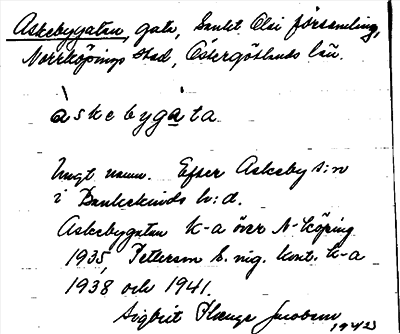 Askebygatan, gata, Sankt Olai församling,
Norrköpings stad, Östergötlands län.
àskebygàta
Ungt namn. Efter Askeby s:n
i Bankekinds h:d.
Askebygatan K-a över N-köping
1935, Peterson E. nig. kont. K-a
1938 och 1941.
Sigbrit Plænge Jacobson 1942